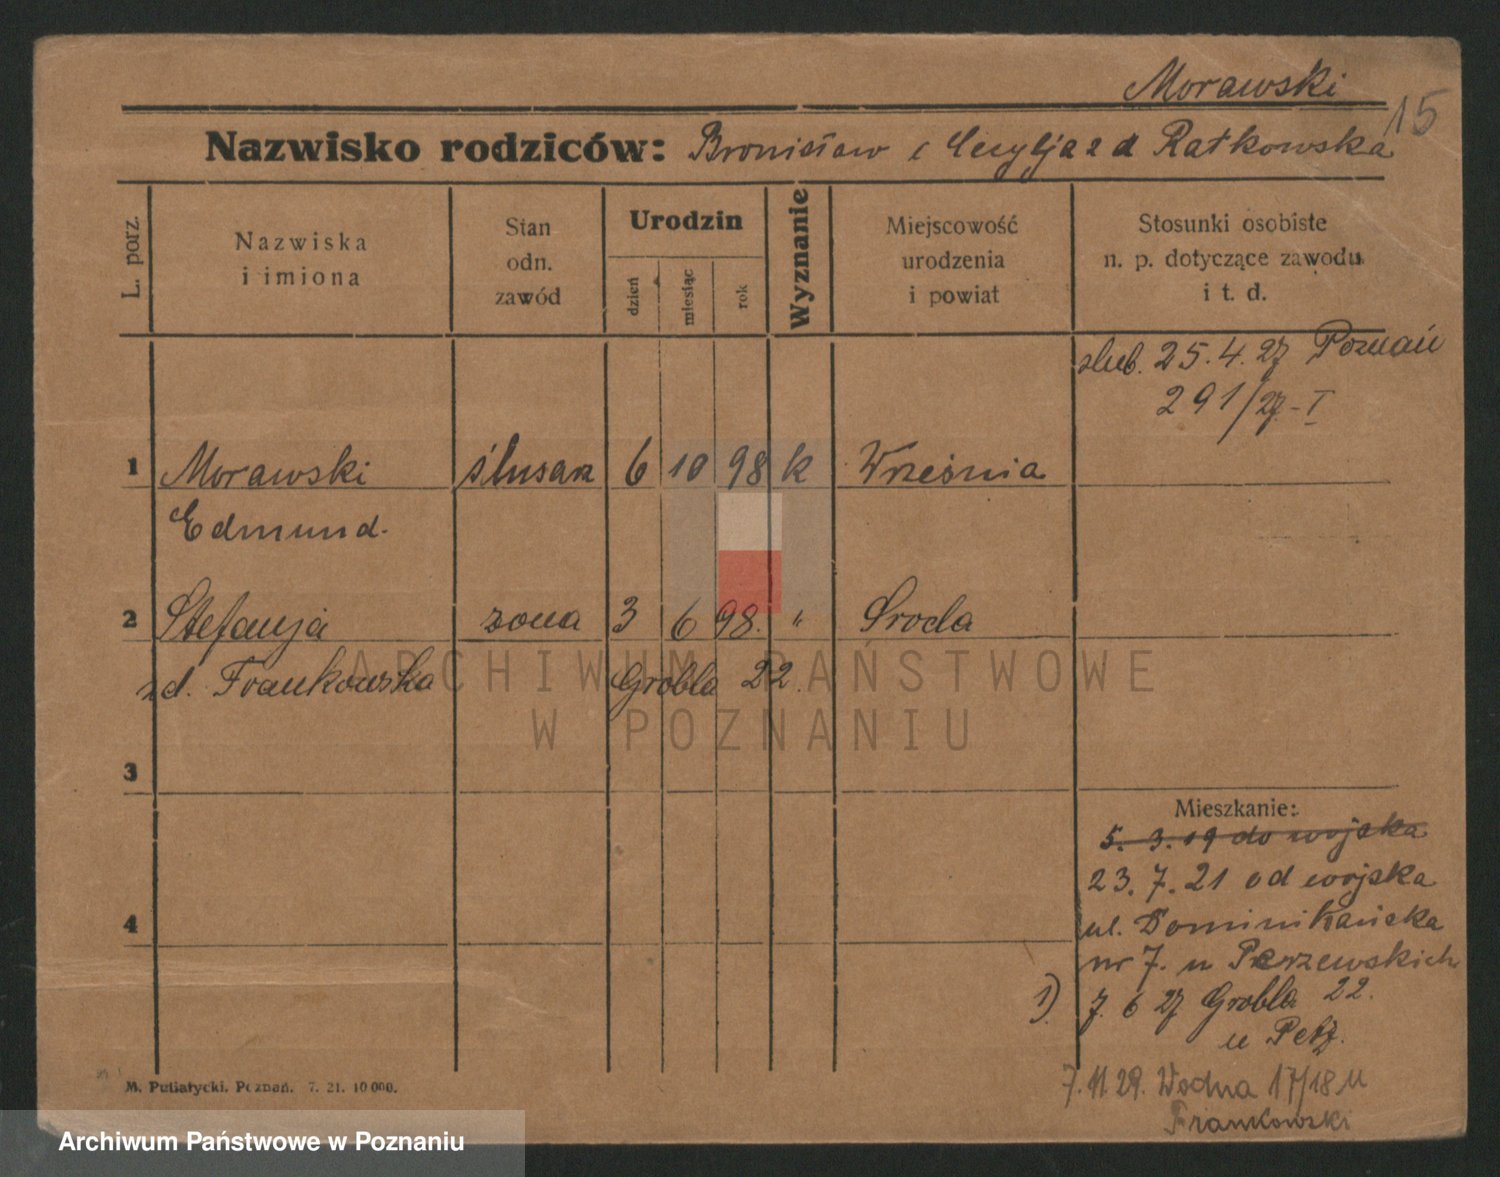 Morawski
15
Nazwisko rodziców: Bronisław i Cecylja z d Ratkowska
L. porz.
Nazwiska
i imiona
Stan
odn.
zawód
Urodzin
dzień
miesiąc
rok
Wyznanie
Miejscowość
urodzenia
i powiat
Stosunki osobiste
n. p. dotyczące zawodu
i t. d.
ślub. 25.4.27 Poznań
291/27-I
1 Morawski ślusarz 6 10 98 k Września
Edmund.
2 Stefanja żona 3 6 98. " Sroda
zd. Frankowska Grobla 22.
ARCHIWUM PAŃSTWOWE
W POZNANIU
3
Mieszkanie:
5. 3. 19 do wojska
23. 7. 21 od wojska
4
ul. Dominikańska
nr 7. u Perzewskich
1). 7. 6 27 Grobla 22.
u Petz.
7. 11 29. Wodna 17/18 u
Frankowski
M. Putiatycki, Poznań. 7. 21. 10 000.
Archiwum Państwowe w Poznaniu